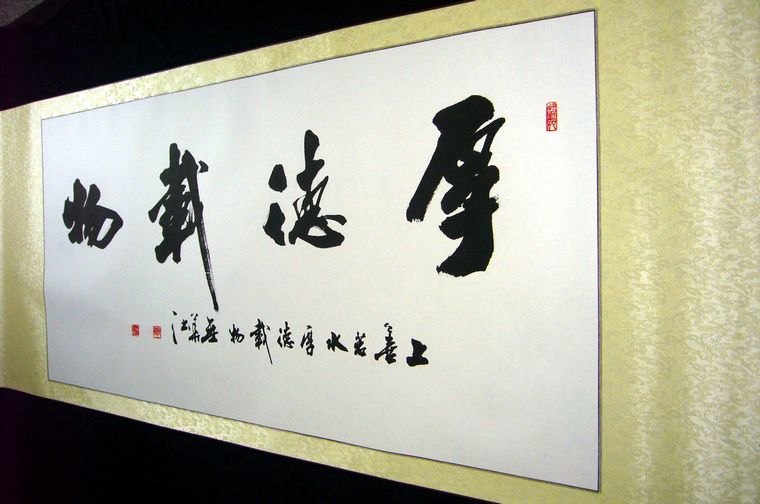 厚德載物
上善若水厚德載物